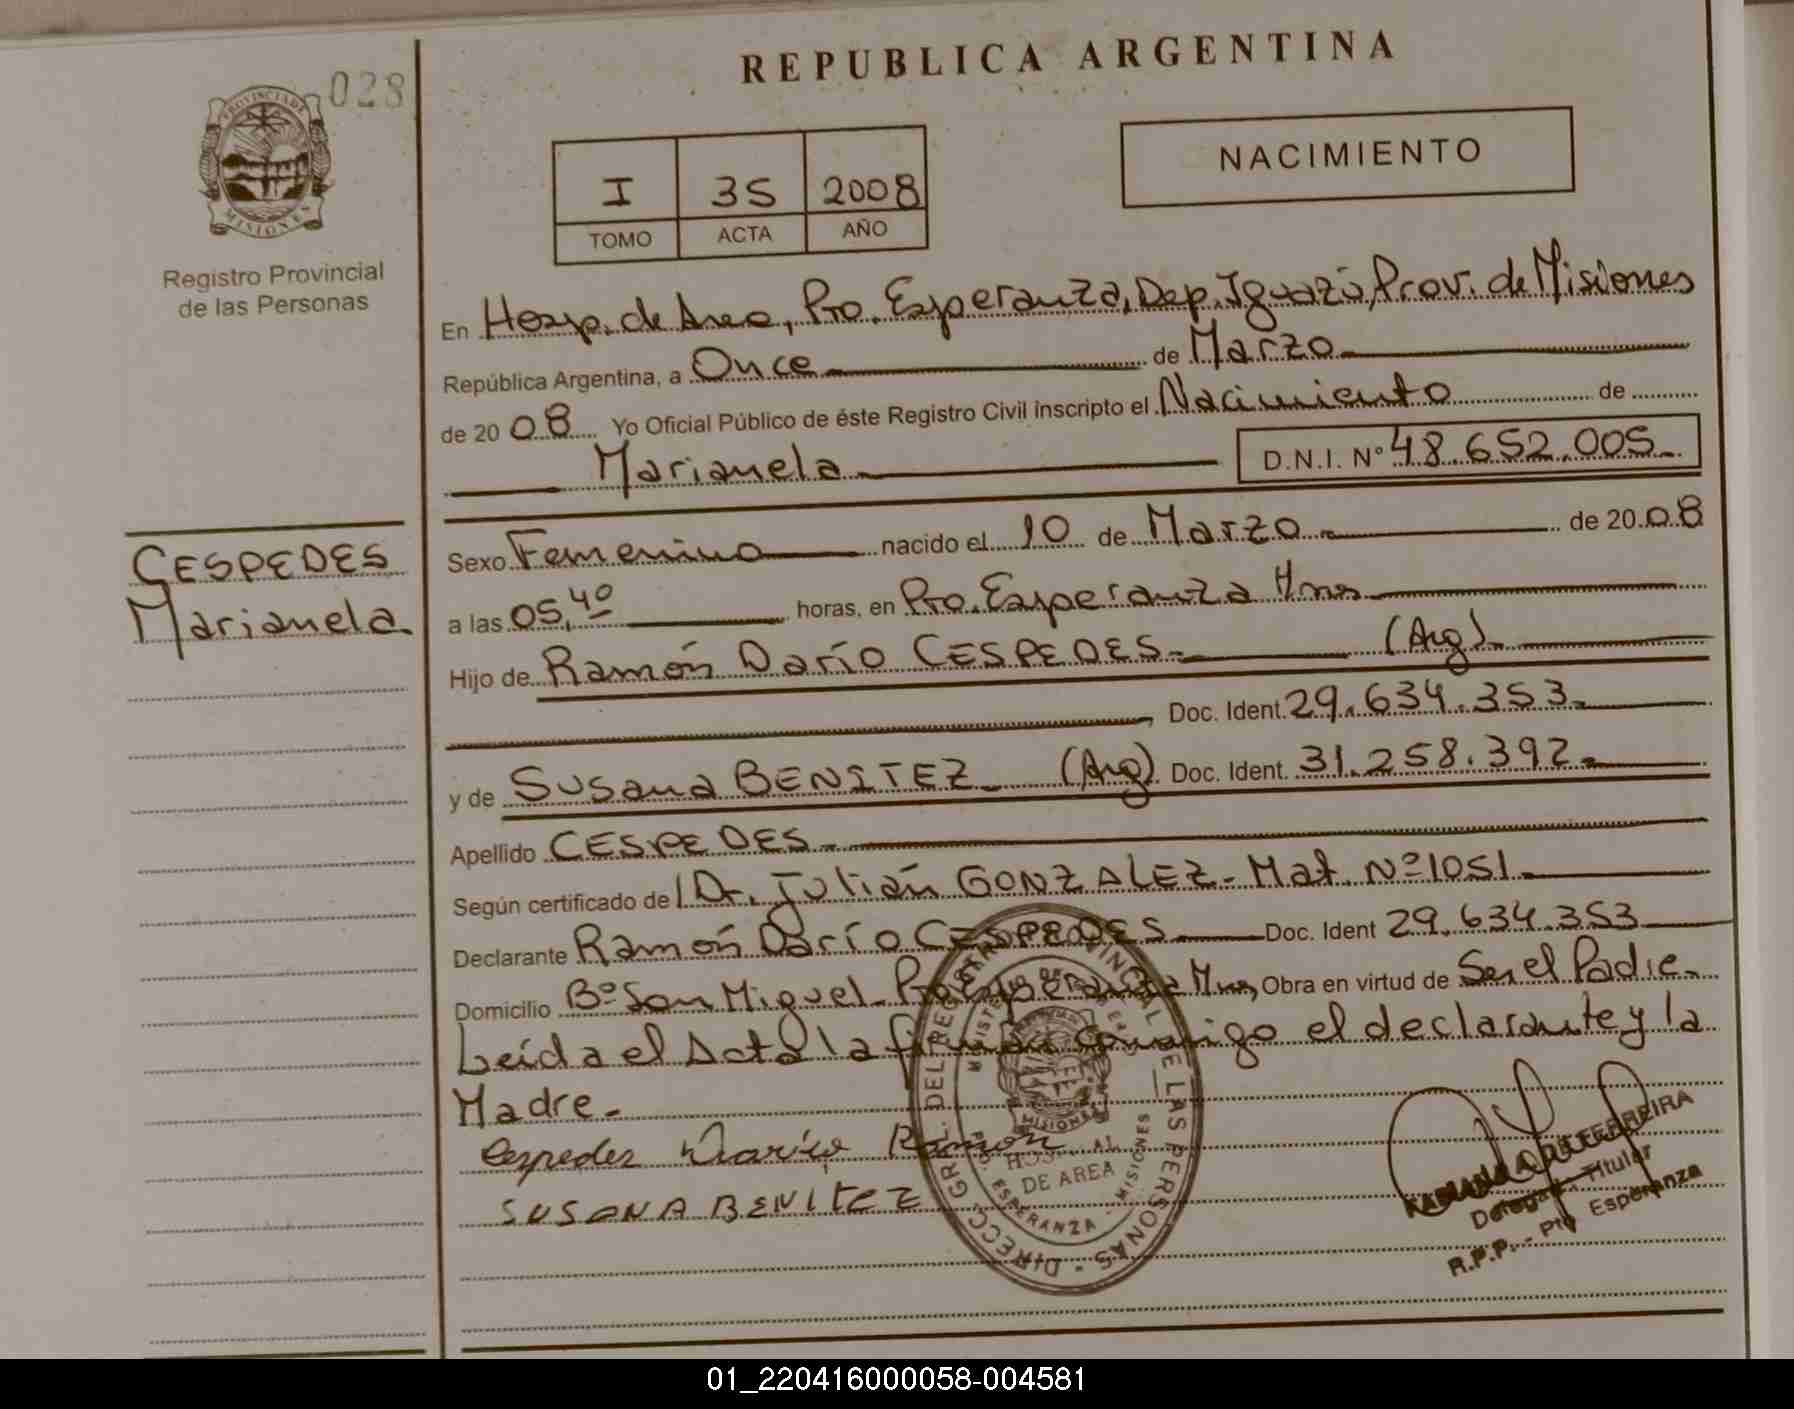 REPUBLICA ARGENTINA
028
PROVINCIA DE
MISIONES
Registro Provincial
de las Personas
I 35 2008
TOMO ACTA AÑO
NACIMIENTO
En Hosp. de Area, Pto. Esperanza, Dep. Iguazú, Prov. de Misiones
República Argentina, a Once de Marzo
de 2008 Yo Oficial Público de éste Registro Civil inscripto el Nacimiento de
Marianela D.N.I. Nº 48.652.005
CESPEDES
Marianela
Sexo Femenino nacido el 10 de Marzo de 2008
a las 05,40 horas, en Pto. Esperanza Mnes
Hijo de Ramón Darío CESPEDES (Arg).
Doc. Ident. 29.634.353
y de Susana BENITEZ (Arg). Doc. Ident. 31.258.392
Apellido CESPEDES
Según certificado de Dr. Julián GONZALEZ - Mat. Nº 1051
Declarante Ramón Darío CESPEDES Doc. Ident 29.634.353
Domicilio Bº San Miguel - Pto Esperanza Mnes, Obra en virtud de Ser el Padre
Leída el Acta la firman conmigo el declarante y la
Madre
Cespedes Darío Ramon
SUSANA BENITEZ
DIRECC. GRL. DEL REGISTRO PROVINCIAL DE LAS PERSONAS
MISIONES
HOSPITAL
DE AREA
ESPERANZA - MISIONES
FERREIRA
Delegada Titular
R.P.P. - Pto Esperanza
01_220416000058-004581